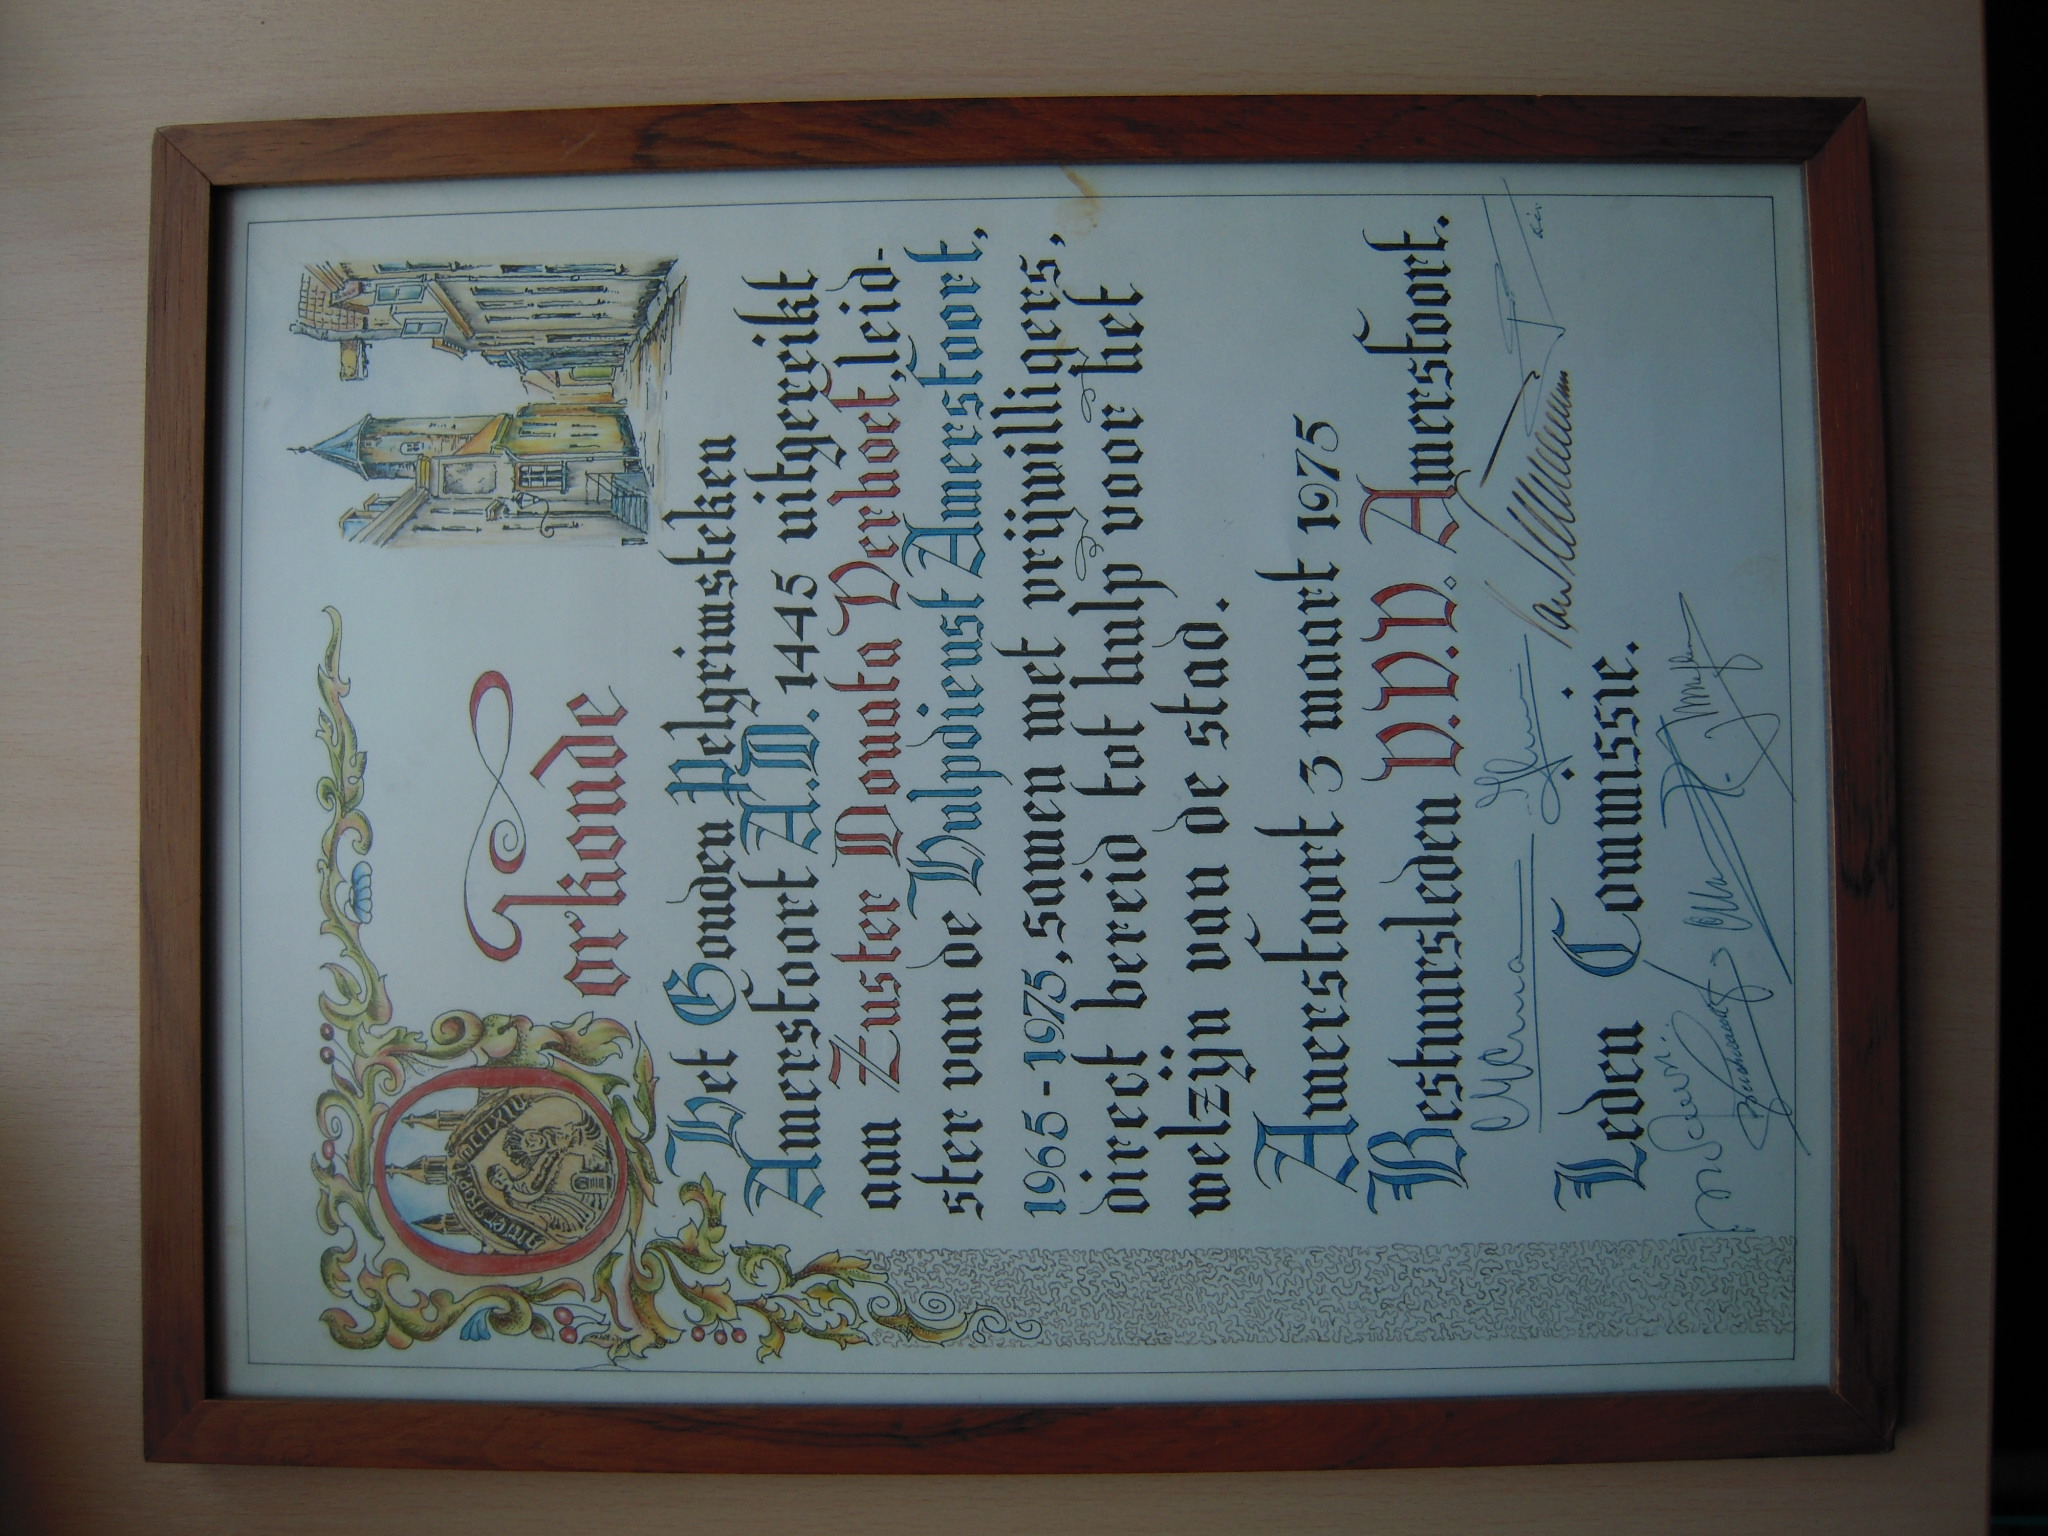 orkonde
AMERSFORT MCCLXIV
Het Gouden Pelgrimsteken
Amersfoort A.D. 1445 uitgereikt
aan Zuster Donata Verhoef, leid-
ster van de Hulpdienst Amersfoort,
1965-1975, samen met vrijwilligers,
direct bereid tot hulp voor het
welzijn van de stad.
Amersfoort 3 maart 1975
Bestuursleden V.V.V. Amersfoort.
Leden Commissie.